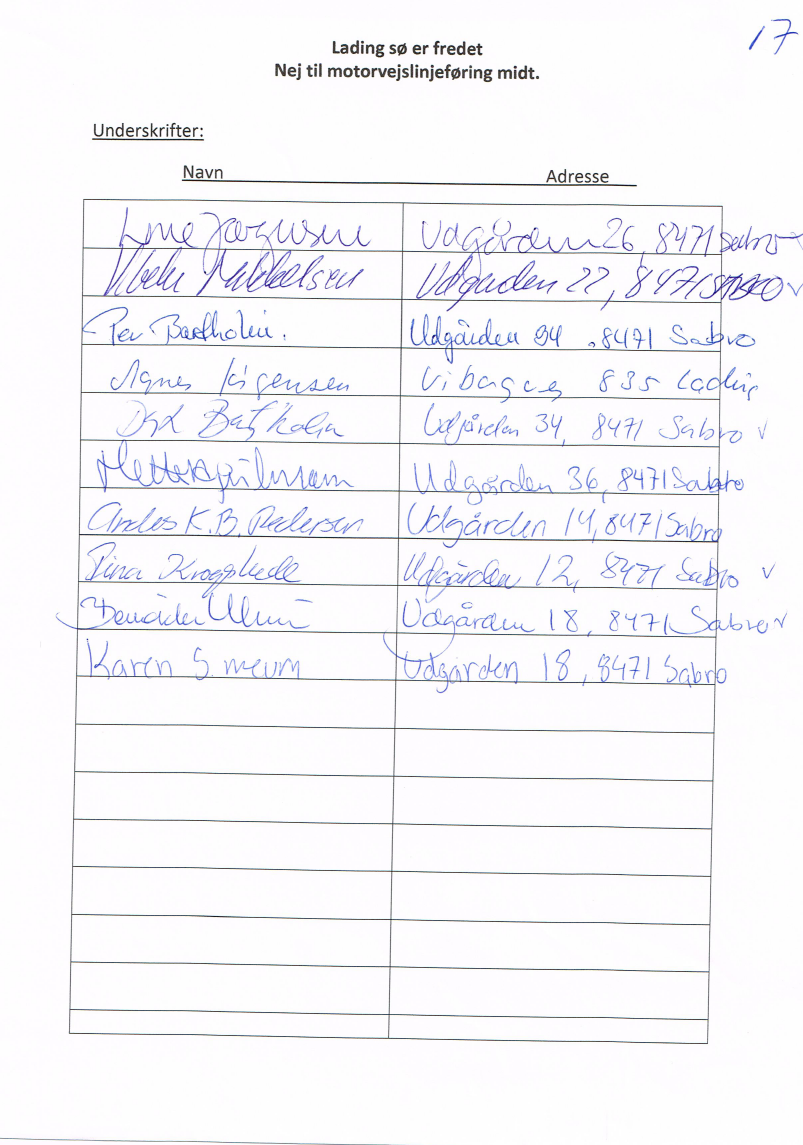 17
Lading sø er fredet
Nej til motorvejslinjeføring midt.
Underskrifter:
Navn Adresse
Udgården 26, 8471 Sabro
Mikkelsen Udgården 22, 8471
Per Bartholin. Udgården 34, 8471 Sabro
Agnes Jörgensen 835 Lading
Udgården 34, 8471 Sabro
Udgården 36, 8471 Sabro
Anders K.B. Pedersen Udgården 14, 8471 Sabro
Tina Udgården 12, 8471 Sabro
Udgården 18, 8471 Sabro
Karen S. Udgården 18, 8471 Sabro